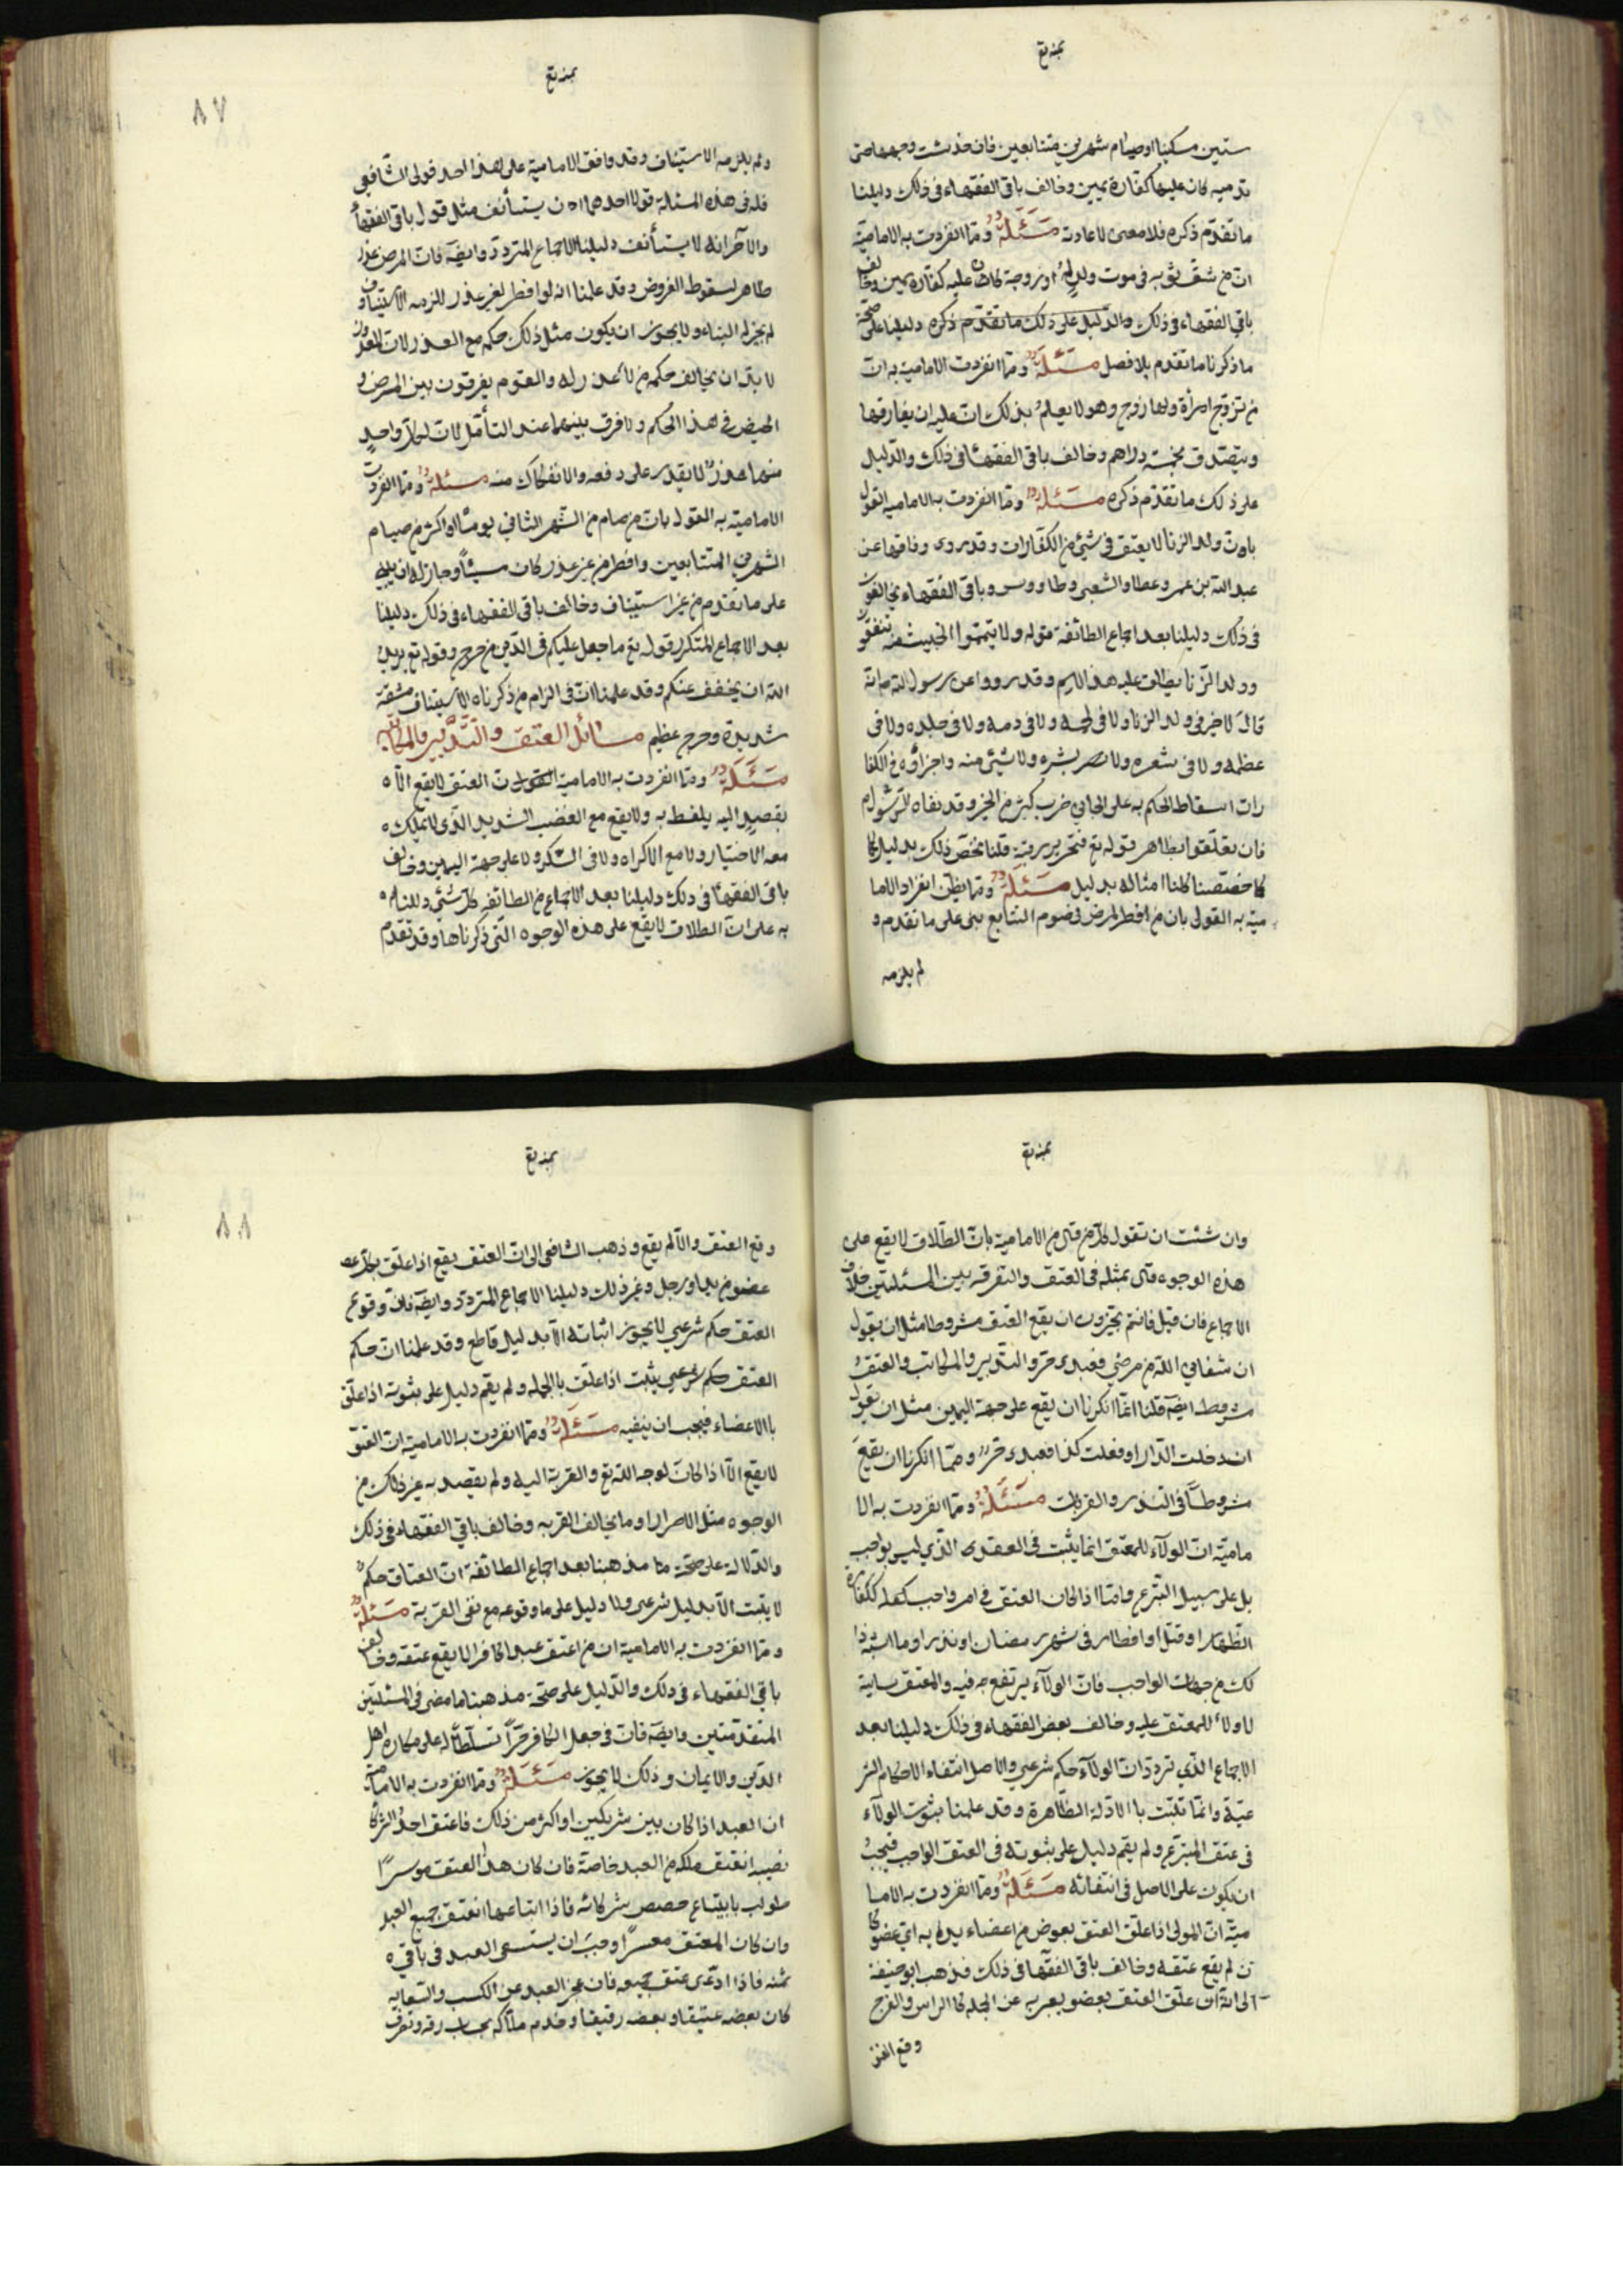 بمنه تع
ستين مسكينا او صيام شهرين متتابعين فان خدشت وجهها حتى
تدميه كان عليها كفارة يمين وخالف باقي الفقهاء في ذلك دليلنا
ما تقدم ذكره فلا معنى لاعادته مَسَئَلَةٌ ومما انفردت به الامامية
ان من شق ثوبه في موت ولدٍ لهُ او زوجة كان عليه كفارة يمين وخالف
باقي الفقهاء في ذلك والدليل على ذلك ما تقدم ذكره دليلنا على صحة
ما ذكرنا ما تقدم بلا فصل مسَئَلَةٌ ومما انفردت الامامية به ان
من تزوج امرأة ولها زوج وهو لا يعلم بذلك ان عليه ان يفارقها
ويتصدق بخمسة دراهم وخالف باقي الفقهاء في ذلك والدليل
على ذلك ما تقدم ذكره مسَئلة ومما انفردت به الامامية القول
بان ولد الزنا لا يعتق في شيء من الكفارات وقد روى وفاقها عن
عبد الله بن عمر وعطا والشعبي وطاووس وباقي الفقهاء يخالفون
في ذلك دليلنا بعد اجماع الطائفة قوله ولا تيمموا الخبيث منه تنفقون
وولد الزنا يطلق عليه هذا الاسم وقد رووا عن رسول الله ص انه
قالَ لا خير في ولد الزنا ولا في لحمه ولا في دمه ولا في جلده ولا في
عظمه ولا في شعره ولا بشره ولا شيء منه واجزاؤه في الكفا
رات اسقاط الحكم به على الجاني ضرب كثير من الخير وقد نفاه الرسول
فان تعلقوا بظاهر قوله تع فتحرير رقبة قلنا نخص ذلك بدليل كما
كما خصصنا كلنا امثاله بدليل مسَئَلَةٌ ومما يظن انفراد الاما
مية به القول بان من افطر لمرض في صوم التتابع بنى على ما تقدم و
لم يلزمه
بمنه تع
٨٧
ولم يلزمه الاستيناف وقد وافق الامامية على هذا احد قولى الشافعي
فله في هذه المسئلة قولا احدهما ان يستأنف مثل قول باقي الفقهاء
والآخر انه لا يستأنف دليلنا الاجماع المتردد وايضَا فان المرض عذر
ظاهر لسقوط الفروض وقد علمنا انه لو افطر لغير عذر للزمه الاستيناف و
لم يجز له البناء ولا يجوز ان يكون مثل ذلك حكمه مع العذر لان المعذور
لا بد ان يخالف حكمه من لا عذر له والقوم يفرقون بين المرض و
الحيض في هذا الحكم ولا فرق بينهما عند التأمل لان لكل واحدٍ
منهما عذرٌ لا يقدر على دفعه والانفكاك منه مسئلةٌ ومما انفردت
الامامية به القول بان من صام من الشهر الثاني يوماً او اكثر من صيام
الشهرين المتتابعين وافطر من غير عذر كان مسيئاً وجاز له ان يبني
على ما تقدم من غير استيناف وخالف باقي الفقهاء في ذلك دليلنا
بعد الاجماع المتكرر قوله تع ما جعل عليكم في الدين من حرج وقوله تع يريد
الله ان يخفف عنكم وقد علمنا ان في الزام من ذكرناه الاستيناف مشقة
شديدة وحرج عظيم مسائل العتق والتدبير والمكاتبة
مَسَئَلَةٌ ومما انفردت به الامامية القول ان العتق لا يقع الا ه
بقصدٍ اليه يلفظ به ولا يقع مع الغضب الشديد الذي لا يملك ه
معه الاختيار ولا مع الاكراه ولا في السكر ولا على جهة اليمين وخالف
باقي الفقهاء في ذلك دليلنا بعد الاجماع من الطائفة كل شيء دللنا ه
به على ان الطلاق لا يقع على هذه الوجوه التي ذكرناها وقد تقدم
بمنه تع
وان شئت ان تقول كل من قال من الامامية بان الطلاق لا يقع على
هذه الوجوه قال بمثله في العتق والتفرقه بين المسئلتين خلاف
الاجماع فان قيل فانتم تجيزون ان يقع العتق مشروطا مثل ان يقول
ان شفاني الله من مرضي فعبدى حر والتدبير والمكاتب والعتقُ
مشروط ايضَا قلنا انما انكرنا ان يقع على جهة اليمين مثل ان يقول
ان دخلت الدار او فعلت كذا فعبدى حرٌ وما انكرنا ان يقعَ
مشروطاً في النذر والقربات مَسَئَلَةٌ ومما انفردت به الا
مامية ان الولاء للمعتق انما يثبت في العتق الذي ليس بواجب
بل على سبيل التبرع واما اذا كان العتق في امر واجب ككفارة
الظهار او قتل او افطار في شهر رمضان او نذر او ما اشبه ذا
لك من جهات الواجب فان الولاء يرتفع فيه والمعتق سايبة
لا ولاء للمعتق عليه وخالف بعض الفقهاء في ذلك دليلنا بعد
الاجماع الذي تردد ان الولاء حكم شرعي والاصل انتفاء الاحكام الشر
عية وانما تثبت بالادلة الظاهرة وقد علمنا بثبوت الولاء
في عتق المتبرع ولم يقم دليل على ثبوته في العتق الواجب فيجبُ
ان يكون على الاصل في انتفائه مسَئَلَةٌ ومما انفردت به الاما
مية ان المولى اذا علق العتق بعوض من اعضاء بدنه اي عضو كا
ن لم يقع عتقه وخالف باقي الفقهاء في ذلك فذهب ابو حنيفة
الى انه ان علق العتق بعضو يعبر به عن الجمله كالراس والفرج
وقع العتق
بمنه تع
٨٨
وقع العتق والا لم يقع وذهب الشافعي الى ان العتق يقع اذا علق بكل عضو
عضو من يد او رجل وغير ذلك دليلنا الاجماع المتردد وايضَا فان وقوع
العتق حكم شرعي لا يجوز اثباته الا بدليل قاطع وقد علمنا ان حكم
العتق حكم شرعي يثبت اذا علق بالجمله ولم يقم دليل على ثبوته اذا علق
بالاعضاء فيجب ان ينفيه مسَئَلَةٌ ومما انفردت به الامامية ان العتق
لا يقع الا اذا كان لوجه الله تع والقربة اليه ولم يقصد به غير ذلك من
الوجوه مثل الاضرار او ما يخالف القربه وخالف باقي الفقهاء في ذلك
والدلالة على صحة ما مذهبنا بعد اجماع الطائفة ان العتاق حكمٌ
لا يثبت الا بدليل شرعي ولا دليل على وقوعه مع نفى القربة مسَئلةٌ
ومما انفردت به الامامية ان من اعتق عبدا كافرا لا يقع عتقه وخالف
باقي الفقهاء في ذلك والدليل على صحة مذهبنا ما مضى في المسئلتين
المتقدمتين وايضَا فان في جعل الكافر حراً تسلطا له على مكاره اهل
الدين والايمان وذلك لا يجوز مسَئَلَةٌ ومما انفردت به الامامية
ان العبد اذا كان بين شريكين او اكثر من ذلك فاعتق احدُ الشركا
نصيبه انعتق ملكه من العبد خاصة فان كان هذا المعتق موسرًا
طولب بابتياع حصص شركائه فاذا ابتاعها انعتق جميع العبد
وان كان المعتق معسرًا وجبَ ان يستسعى العبد في باقي ه
ثمنه فاذا ادّى عتق جميعه فان عجز العبد عن الكسب والسعايه
كان بعضه عتيقا وبعضه رقيقا وخدم ملاكه بحساب رقه وتصرف